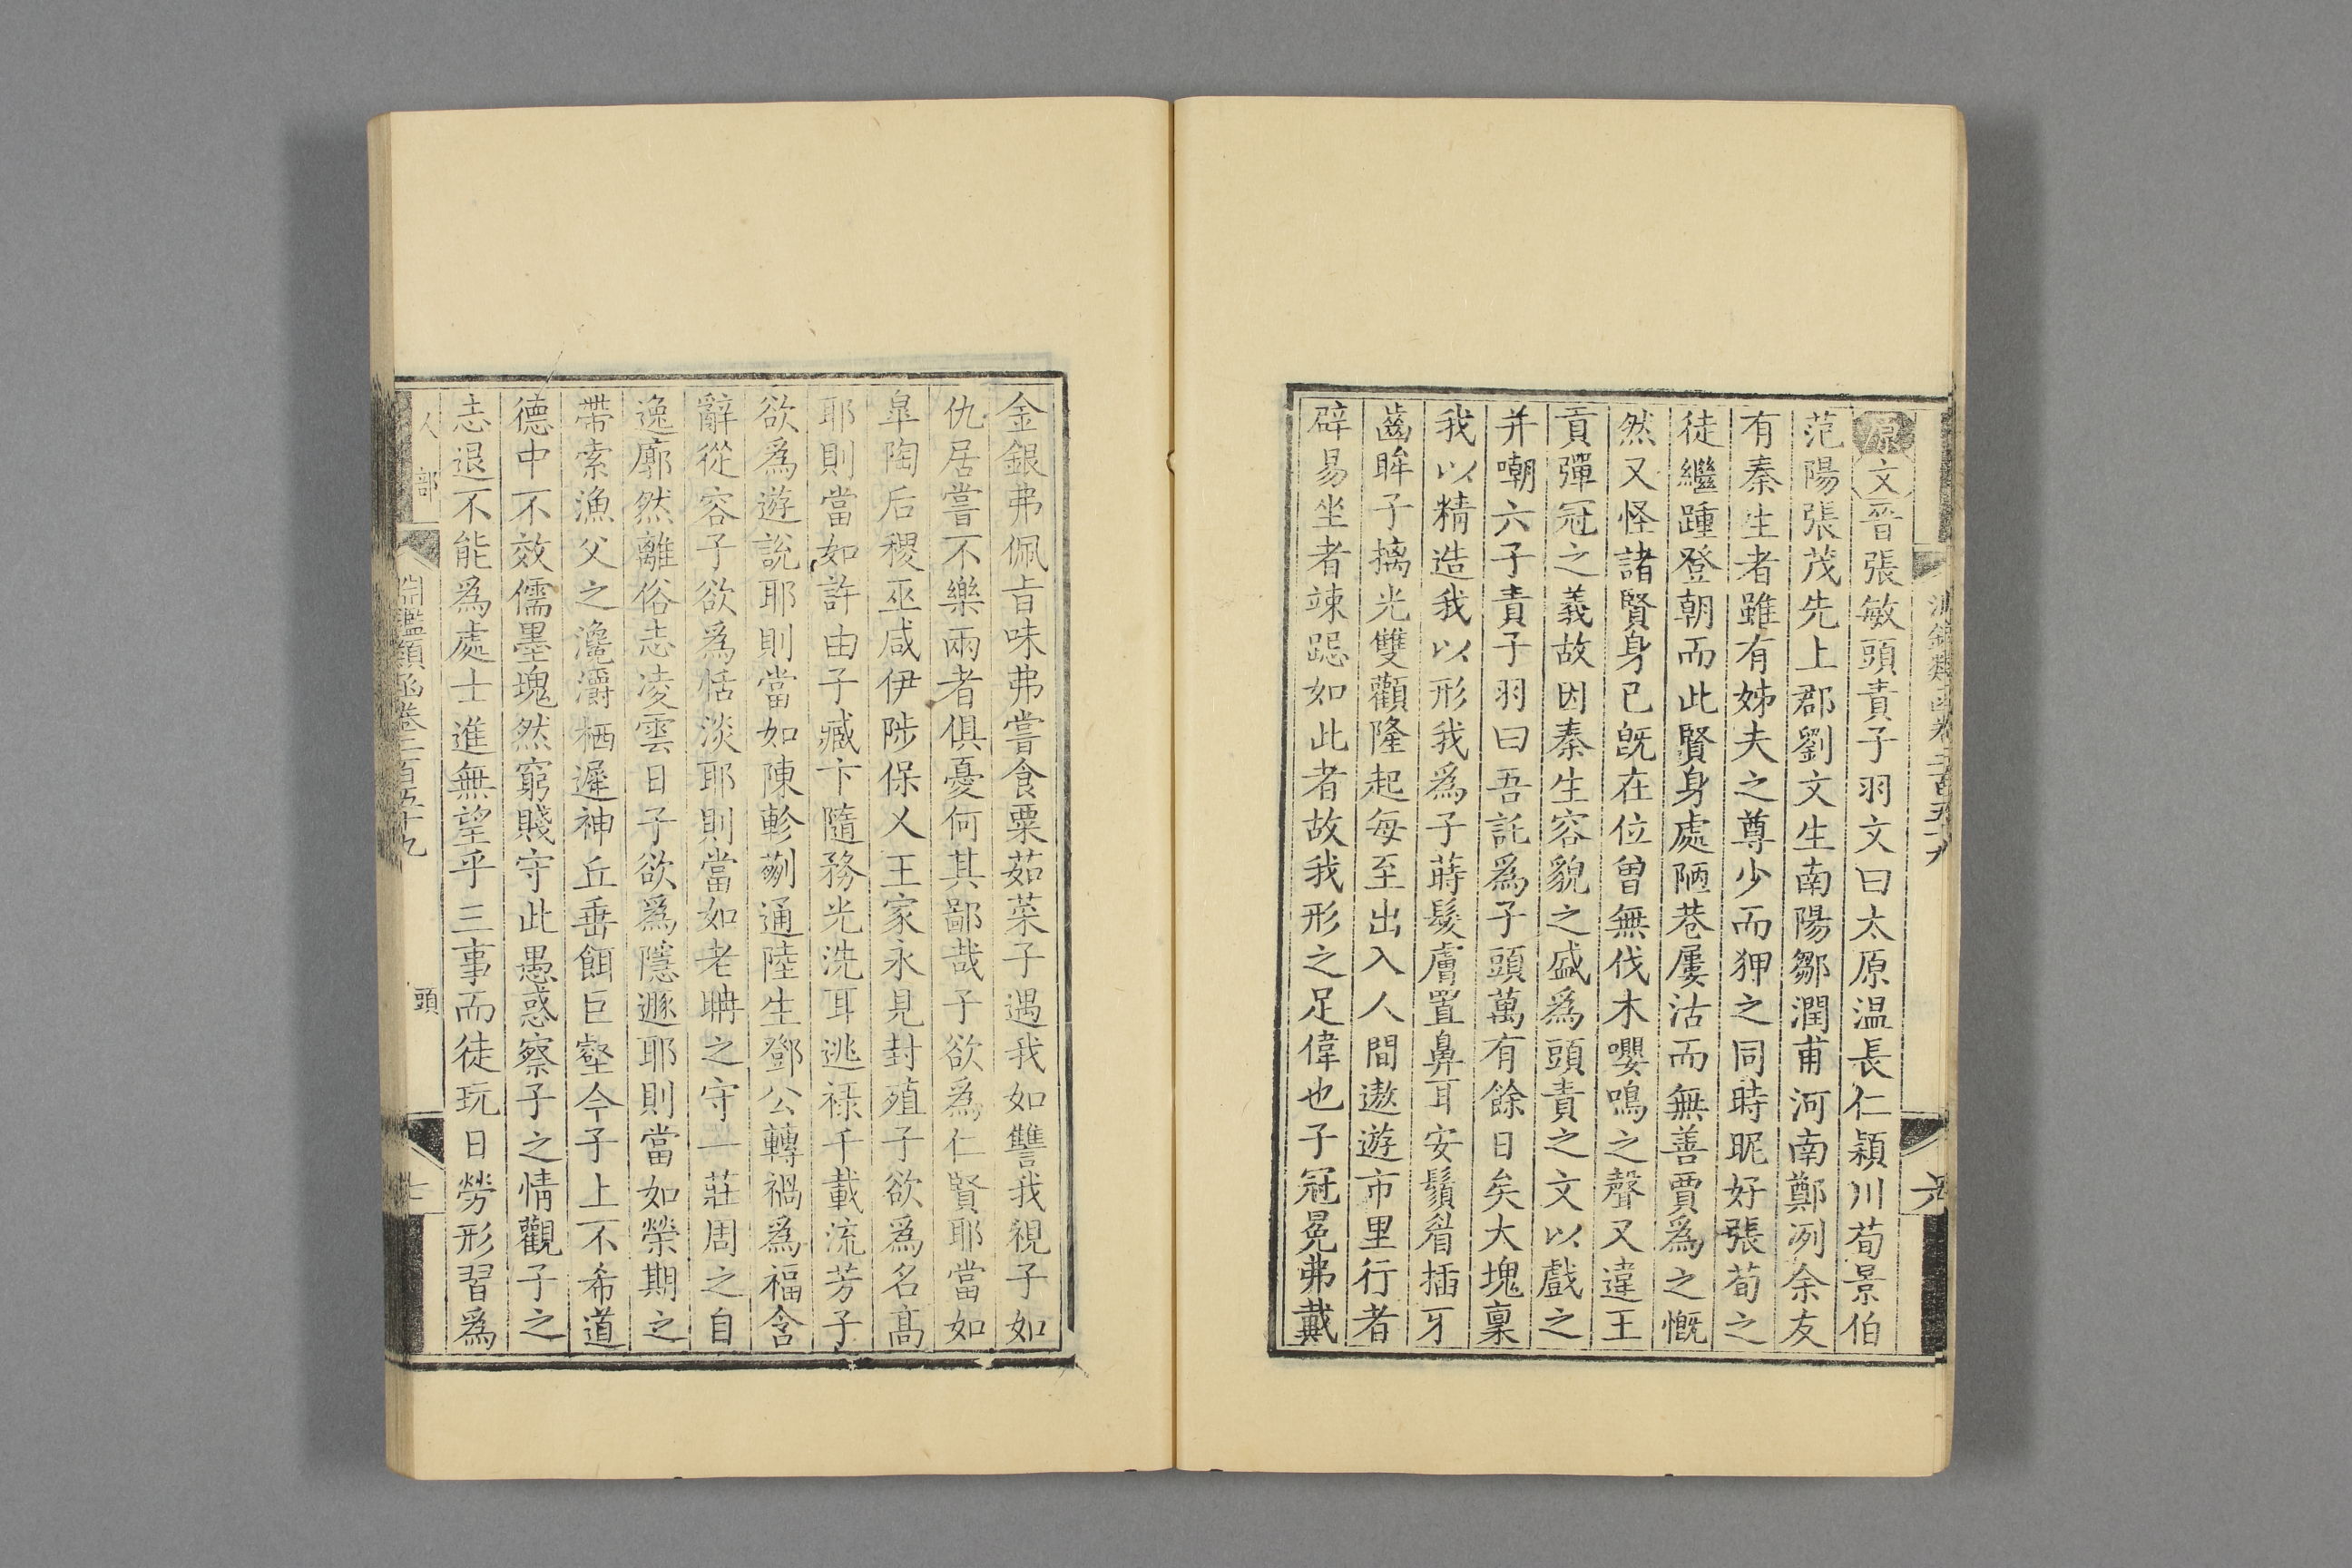 原文晉張敏頭責子羽文曰太原温長仁潁川荀景伯
范陽張茂先上郡劉文生南陽鄒潤甫河南鄭洌余友
有秦生者雖有姊夫之尊少而狎之同時昵好張荀之
徒繼踵登朝而此賢身處陋巷屢沽而無善賈爲之慨
然又怪諸賢身已旣在位曾無伐木嚶鳴之聲又違王
貢彈冠之義故因秦生容貌之盛爲頭責之文以戲之
并嘲六子責子羽曰吾託爲子頭萬有餘日矣大塊稟
我以精造我以形我爲子蒔髮膚置鼻耳安鬚眉插牙
齒眸子摛光雙顴隆起每至出入人間遨遊市里行者
辟易坐者竦跽如此者故我形之足偉也子冠冕弗戴
金銀弗佩旨味弗嘗食粟茹菜子遇我如讐我視子如
仇居嘗不樂兩者俱憂何其鄙哉子欲爲仁賢耶當如
皐陶后稷巫咸伊陟保乂王家永見封殖子欲爲名髙
耶則當如許由子臧卞隨務光洗耳逃祿千載流芳子
欲爲遊說耶則當如陳軫蒯通陸生鄧公轉禍爲福含
辭從容子欲爲恬淡耶則當如老聃之守一莊周之自
逸廓然離俗志凌雲日子欲爲隱遯耶則當如榮期之
帶索漁父之瀺灂栖遲神丘垂餌巨壑今子上不希道
德中不效儒墨塊然窮賤守此愚惑察子之情觀子之
志退不能爲處士進無望乎三事而徒玩日勞形習爲
人部 淵鑑類函卷二百五十九 頭